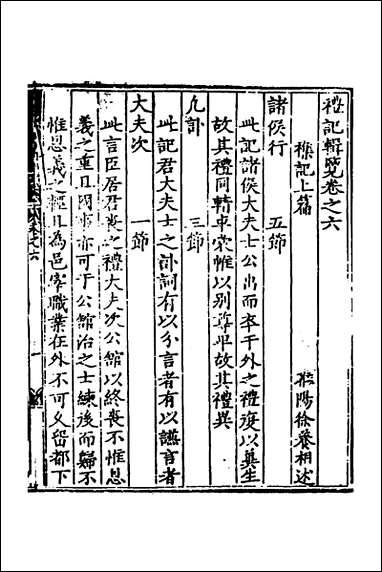 禮記輯覽卷之六
雜記上篇
睢陽徐養相述
諸侯行 五節
此記諸侯大夫士公出而卒于外之禮復以冀生
故其禮同輤車裳帷以別尊卑故其禮異
凡訃 三節
此記君大夫士之訃詞有以分言者有以謙言者
大夫次 一節
此言臣居君喪之禮大夫次公館以終喪不惟恩
義之重且國事亦可于公館治之士練後而歸不
惟恩義之輕且為邑宰職業在外不可久留都下
卷之六
一